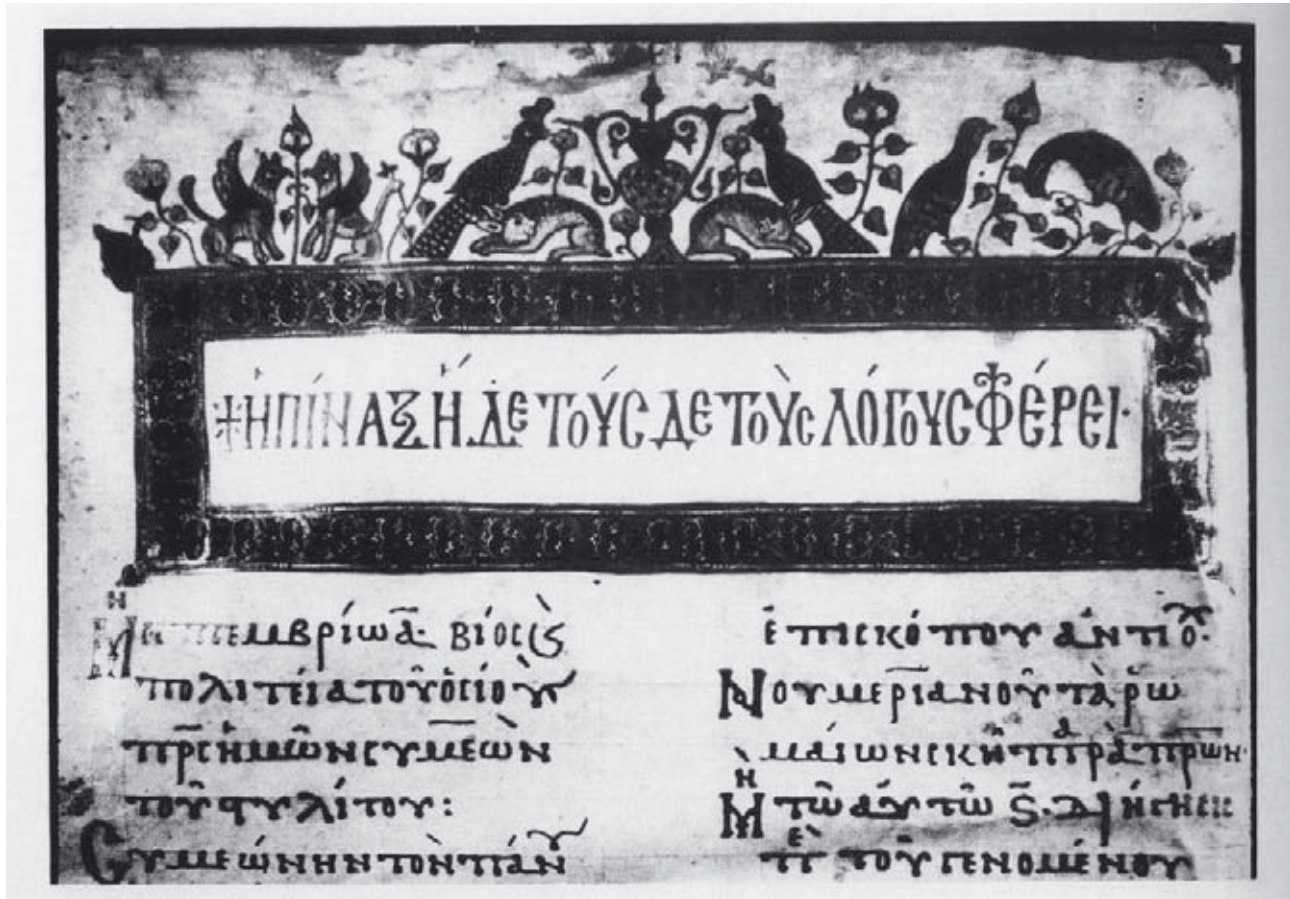 ἩΠΊΝΑΞ ἬΔΕ ΤΟΎΣΔΕ ΤΟῪΣ ΛΌΓΟΥΣ ΦΈΡΕΙ·
σεπτεμβρίω ᾱ· βίος ϗ
πολιτεία τοῦ ὁσίου
π̅ρ̅ς ἡμῶν συμεὼν
τοῦ στυλίτου:
Συμεώνην τὸν πάνυ
ἐπισκόπου ἀντιο·
Νουμεριανοῦ τὰ ῥω
μαίων σκῆπτρα πρώην·
Μη τῶ αὐτῶ ς̅. διήγησις
τοῦ γενομένου